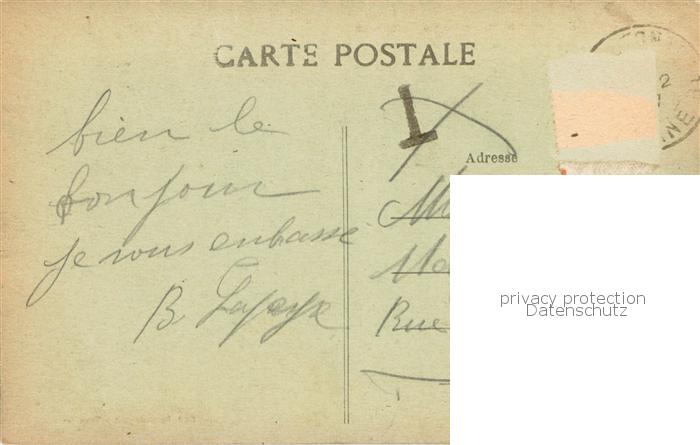 CARTE POSTALE
bien le
bonjour
je vous enbasse
B.
T
Adresse
Rue
privacy protection
Datenschutz